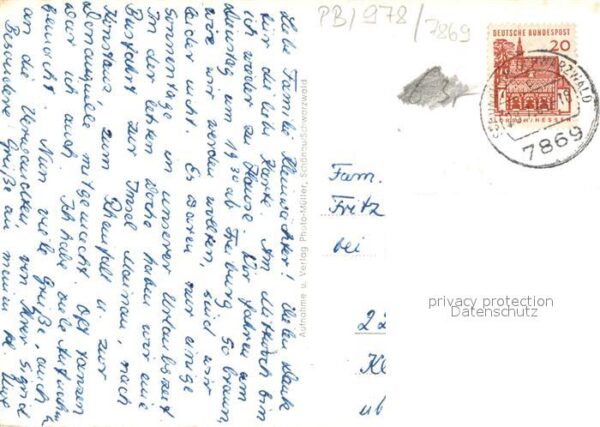 PB/978/7869
DEUTSCHE BUNDESPOST
20
LORSCH/HESSEN
SCHWARZWALD
7869
Liebe Familie Kleinwächter! Vielen Dank
für die liebe Karte. Am Mittwoch bin
ich wieder zu Hause. Wir fahren am
Dienstag um 19 30 ab Freiburg. So braun,
wie wir werden wollten, sind wir
leider nicht. Es waren nur einige
Sonnentage in unserer Urlaubszeit
In der letzten Woche haben wir eine
Busfahrt zur Insel Mainau, nach
Konstanz, zum Rheinfall u. zur
Donauquelle mitgemacht. Oft tanzen
war ich auch. Ich habe viele Aufnahmen
gemacht. Nun viele Grüße, auch
an die von Ihrer Sigrid
Besondere Grüße an meine kl.
Aufnahme u. Verlag Photo-Müller, Schönau/Schwarzwald
Fam.
Fritz
bei
22
Kl
ub
privacy protection
Datenschutz